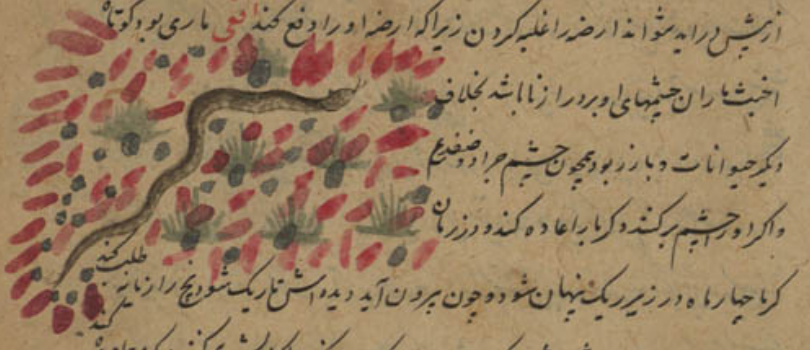 از پیش درآید نتواند ارضه را غلبه کردن زیرا که ارضه او را دفع کند افعی ماری بود کوتاه
اخبث ماران چشمهای او بر درازنا باشد بخلاف
دیگر حیوانات و بارز بود همچون چشم جراد و ضفدع
و اکر او را چشم برکنند دکر بار اعاده کند و در زمان
کرما چهار ماه در زیر ریک پنهان شود و چون بیرون آید دیده اش تاریک شود
طلب کند
کند